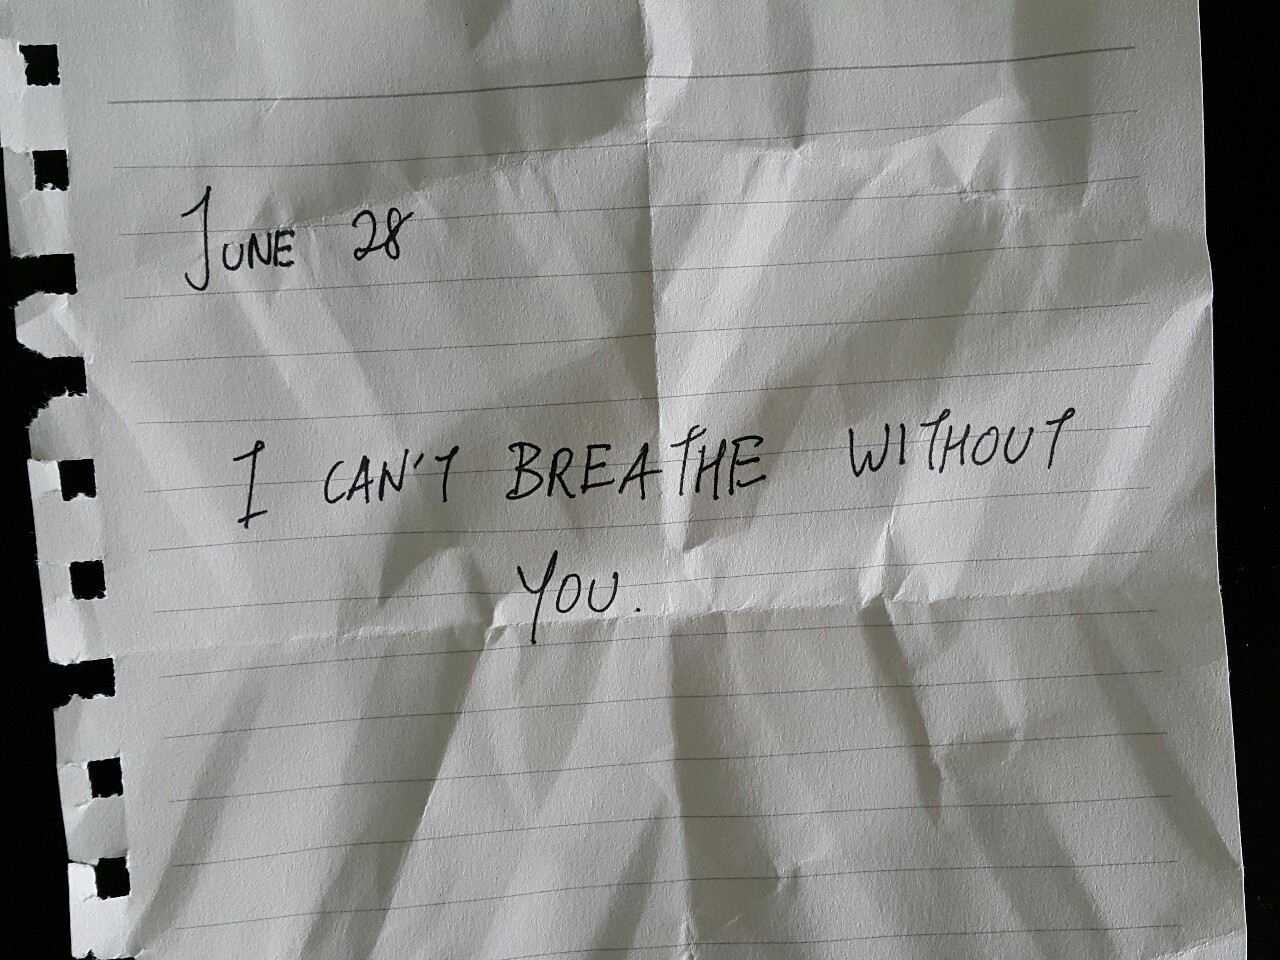 June 28
I CAN'T BREATHE WITHOUT
YOU.